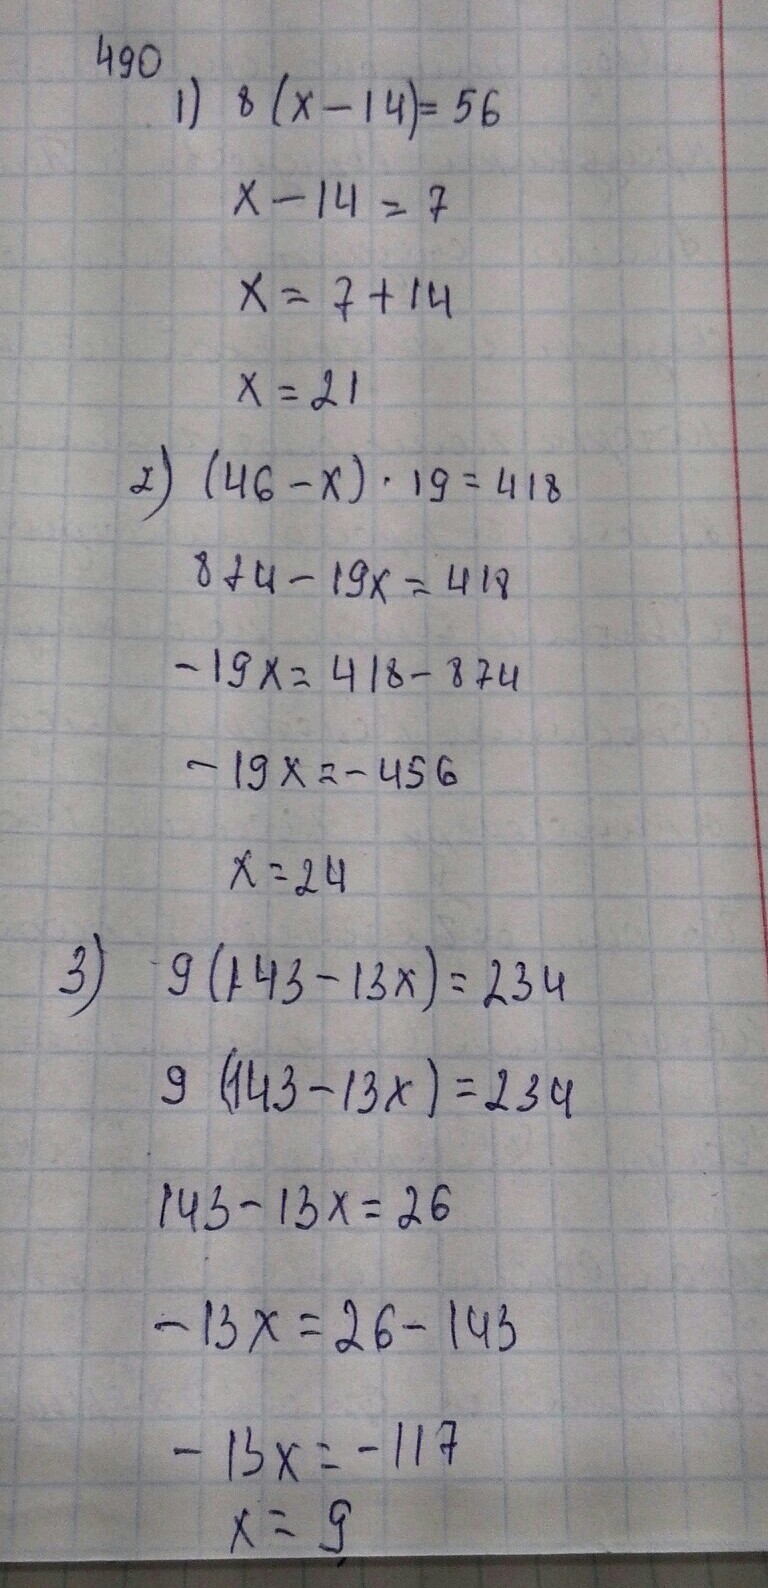 490
1) 8(x-14)=56
x-14=7
x=7+14
x=21
2) (46-x)·19=418
874-19x=418
-19x=418-874
-19x=-456
x=24
3) 9(143-13x)=234
9(143-13x)=234
143-13x=26
-13x=26-143
-13x=-117
x=9